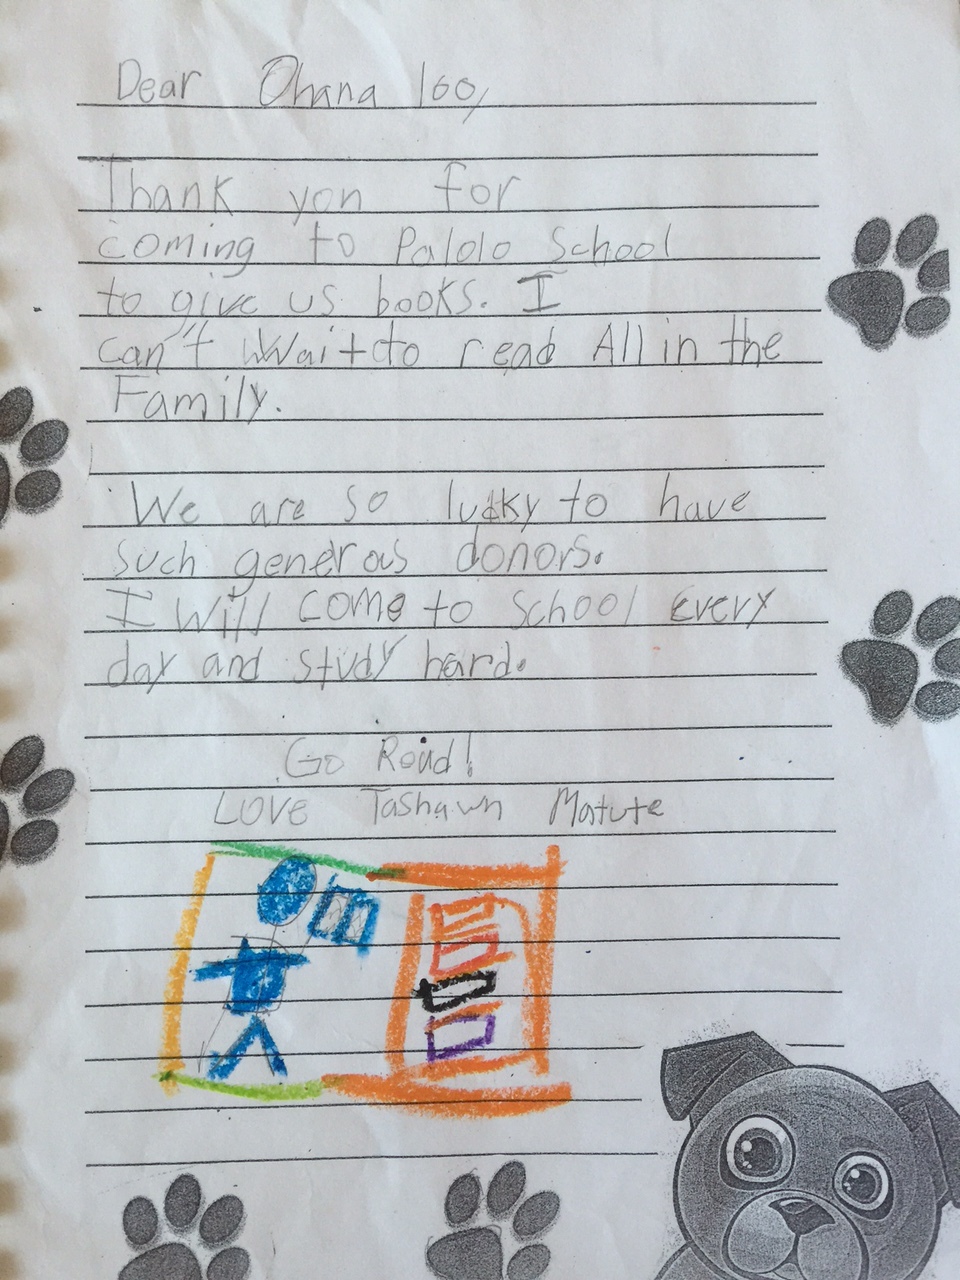 Dear Ohana 100,
Thank you for
coming to Palolo School
to give us books. I
can't Wait to read All in the
Family.
We are so lucky to have
such generous donors.
I will come to School Every
day and study hard.
Go Read!
Love Tashawn Matute